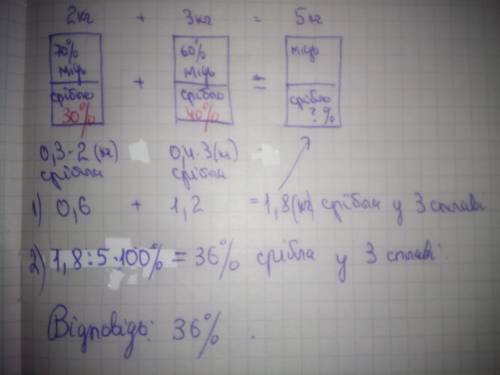 2кг + 3кг = 5кг
70% 60% мідь
мідь + мідь =
срібло срібло срібло
30% 40% ?%
0,3·2 (кг) 0,4·3 (кг)
срібла срібла
1) 0,6 + 1,2 = 1,8 (кг) срібла у 3 сплаві
2) 1,8:5·100% = 36% срібла у 3 сплаві.
Відповідь: 36%.